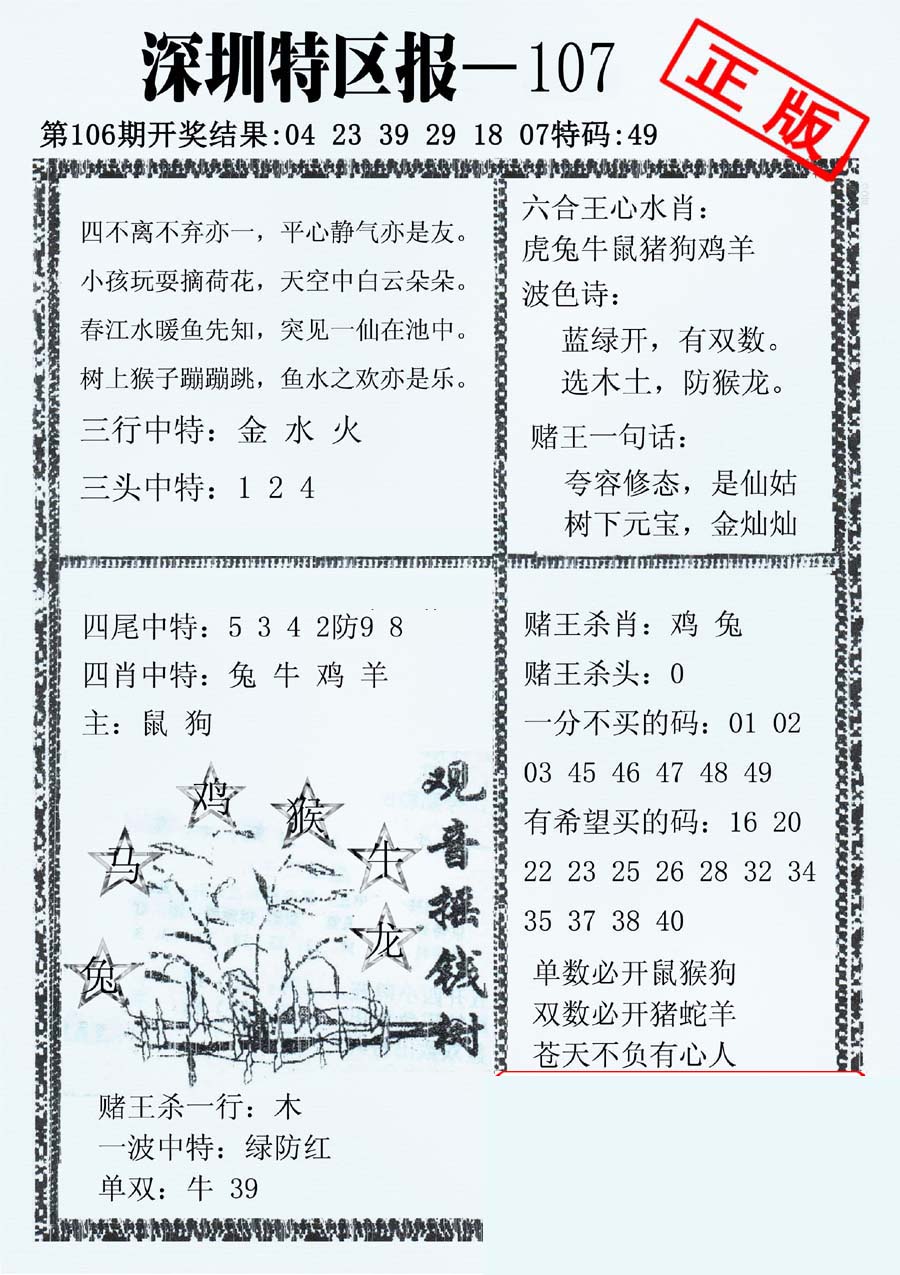 深圳特区报—107
正版
第106期开奖结果:04 23 39 29 18 07特码:49
四不离不弃亦一，平心静气亦是友。
小孩玩耍摘荷花，天空中白云朵朵。
春江水暖鱼先知，突见一仙在池中。
树上猴子蹦蹦跳，鱼水之欢亦是乐。
三行中特：金 水 火
三头中特：1 2 4
六合王心水肖：
虎兔牛鼠猪狗鸡羊
波色诗：
蓝绿开，有双数。
选木土，防猴龙。
赌王一句话：
夸容修态，是仙姑
树下元宝，金灿灿
四尾中特：5 3 4 2防9 8
四肖中特：兔 牛 鸡 羊
主：鼠 狗
鸡
猴
马
牛
龙
兔
观音摇钱树
赌王杀一行：木
一波中特：绿防红
单双：牛 39
赌王杀肖：鸡 兔
赌王杀头：0
一分不买的码：01 02
03 45 46 47 48 49
有希望买的码：16 20
22 23 25 26 28 32 34
35 37 38 40
单数必开鼠猴狗
双数必开猪蛇羊
苍天不负有心人